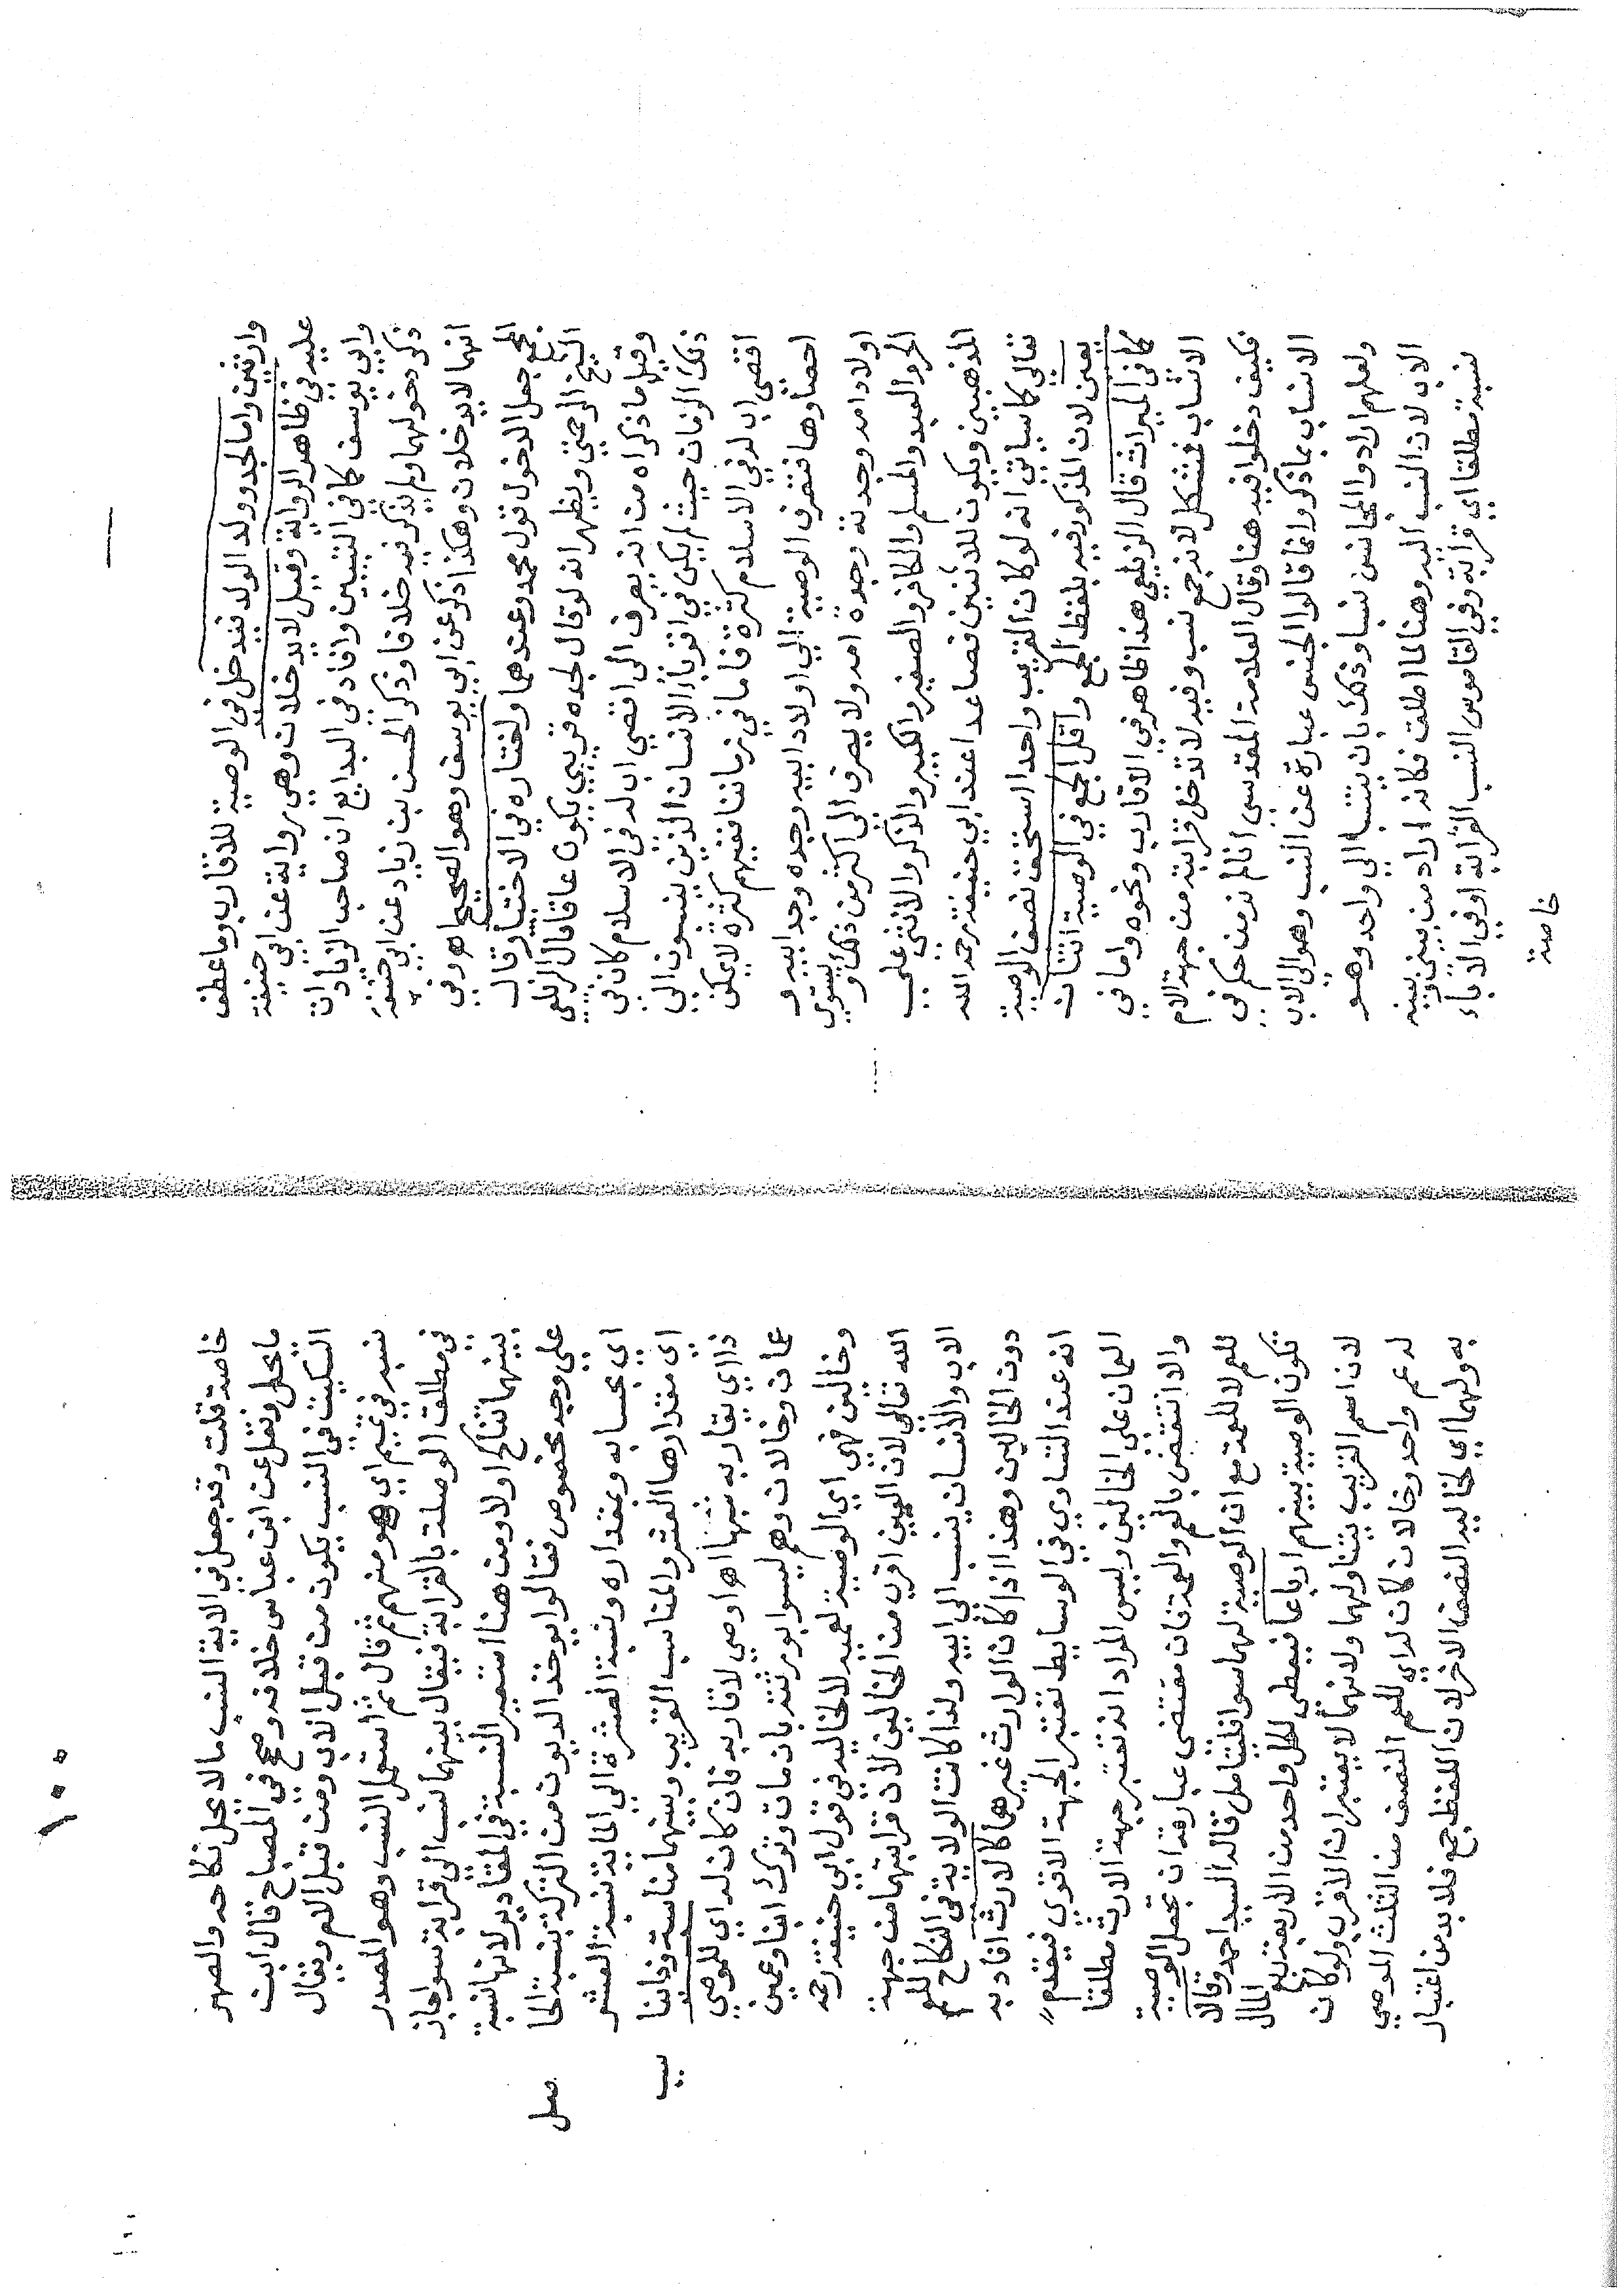 وارثين واما الجد وولد الولد فيدخل في الوصية للاقارب وما عطف
عليه في ظاهر الرواية وقيل لا يدخلان وهي رواية عن ابي حنيفة
وابي يوسف كما في التبيين وافاد في البدايع ان صاحب الزيادات
ذكر دخولهما ولم يذكر فيه خلافا وذكر الحسن بن زياد عن ابي حنيفة
انهما لا يدخلان وهكذا ذكر عن ابي يوسف وهو الصحيح اهـ وفي
المجمع جعل الدخول قول محمد وعندهما ولختاره في الاختيار وقال
الشيخ الرحمتي ويظهر انه لو قال لجده قريبي يكون عاقا قال الزيلعي
وقيل ما ذكراه من انه يصرف الى اقصى اب له في الاسلام كان في
ذلك الزمان حيث لم يكن في اقرباء الانسان الذين ينسبون الي
اقصى اب له في الاسلام كثرة فاما في زماننا ففيهم كثرة لا يمكن
احصاوها فتصرف الوصية الي اولاد ابيه وجده وجد ابيه و
اولاد امه وجدته وجدة امه ولا يصرف الى اكثر من ذلك ويستوي
الحر والعبد والمسلم والكافر والصغير والكبير والذكر والانثى علي
المذهبين ويكون للاثنين فصاعدا عند ابي حنيفة رحمه الله
تعالي كما سياتي انه لو كان القريب واحدا استحق نصف الوصية
يعني لان المذكور فيه بلفظ الجمع واقل الجمع في الوصية اثنان
كما في الميراث قال الزيلعي هذا ظاهر في الاقارب ونحوه واما في
الانساب فمشكل لانه جمع نسب وفيه لا تدخل قرابته من جهة الام
فكيف دخلوا فيه هنا وقال العلامة المقدسي انا لم نر من حكم في
الانساب بما ذكر وانما قالوا الجنس عبارة عن النسب وهو الي الاب
ولعلهم ارادوا المجانس نسبا وذلك بان ينتسبا الي واحد وهو
الاب لان النسب اليه وهنا لما اطلق فكانه اراد من بيني وبينه
نسبة مطلقا اي قرابة وفي القاموس النسب القرابة او في الاباء
خاصة
١٠٠
خاصة قلت وقد جعل في الاية النسب ما لا يحل نكاحه والصهر
ما يحل ونقل عن ابن عباس خلافه وصحح في المصباح قال ابن
السكيت في النسب يكون من قبل الاب ومن قبل الام ويقال
نسبه في تميم اي هو منهم ثم قال ثم استعمل النسب وهو المصدر
في مطلق الوصلة بالقرابة فيقال بينهما نسب اي قرابة سوا جاز
بينهما تناكح او لا ومن هنا استعير النسبة في المقادير لانها نسبة
علي وجه مخصوص فقالوا يوخذ الديون من التركة بنسبة الحا
صل
اي بحسابه ومقداره ونسبة العشرة الى الماية نسبة العشر
اي مقدارها العشر والمناسب القريب وبينهما مناسبة وهذا ينا
سب
ذا اي يقاربه شبها اهـ اوصي لاقاربه فان كان له اي للموصي
عمان وخالات وهم ليسوا بورثته بان مات وترك ابنا وعمين
وخالين فهي اي الوصية لعميه لا لخاليه في قول ابي حنيفة رحمه
الله تعالي لان العمين اقرب من الخالين لان قرابتهما من جهة
الاب والانسان ينسب الي ابيه ولذا كانت الولاية في النكاح للعم
دون الخالين وهذا اذا كان الوارث غيرهما كالارث افاد به
انه عند التساوي في الوسايط تعتبر الجهة الاقوي فيقدم
العمان على الخالين وليس المراد انه تعتبر جهة الارث مطلقا
والا انتقض بالعم والعمة فان مقتضى عبارته ان تجعل الوصية
للعم لا للعمة مع ان الوصية لهما سوا فليتامل قاله السيد احمد وقالا
تكون الوصية بينهم ارباعا فيعطي لكل واحد من الاربعة ربع المال
لان اسم القريب يتناولهما ولانهما لا يعتبران الاقرب ولو كان
له عم واحد وخالان كان له اي للعم النصف من الثلث الموصي
به ولهما اي لخاليه النصف الاخر لان اللفظ جمع فلا بد من اعتبار